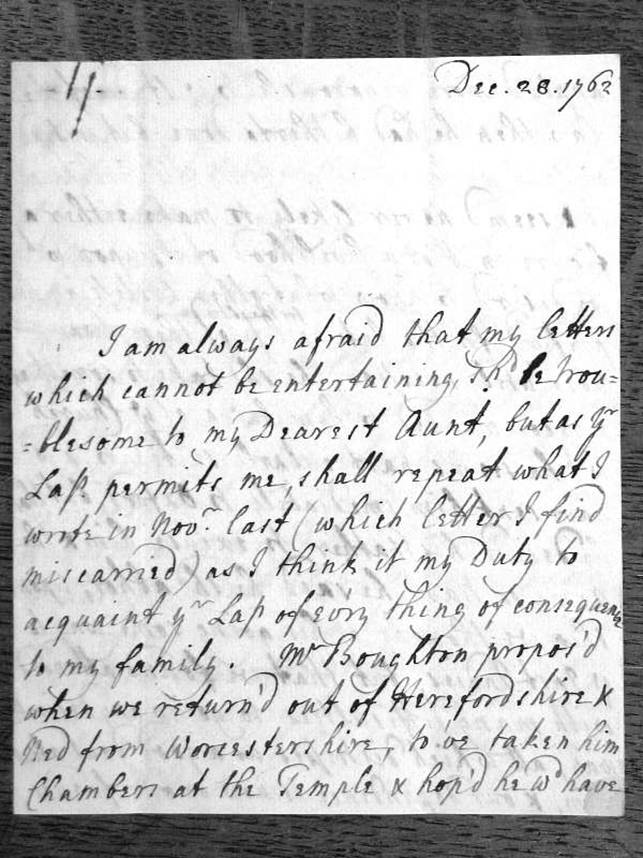 Dec. 28. 1762
I am always afraid that my letters
which cannot be entertaining, shd be trou=
=blesome to my Dearest Aunt, but as yr
Lap permits me, shall repeat what I
wrote in Novr. last (which letter I find
miscarried) as I think it my Duty to
acquaint yr Lap of evry thing of consequence
to my family. Mr Boughton propos'd
when we return'd out of Herefordshire &
Ned from Worcestershire, to've taken him
Chambers at the Temple & hop'd he wd have